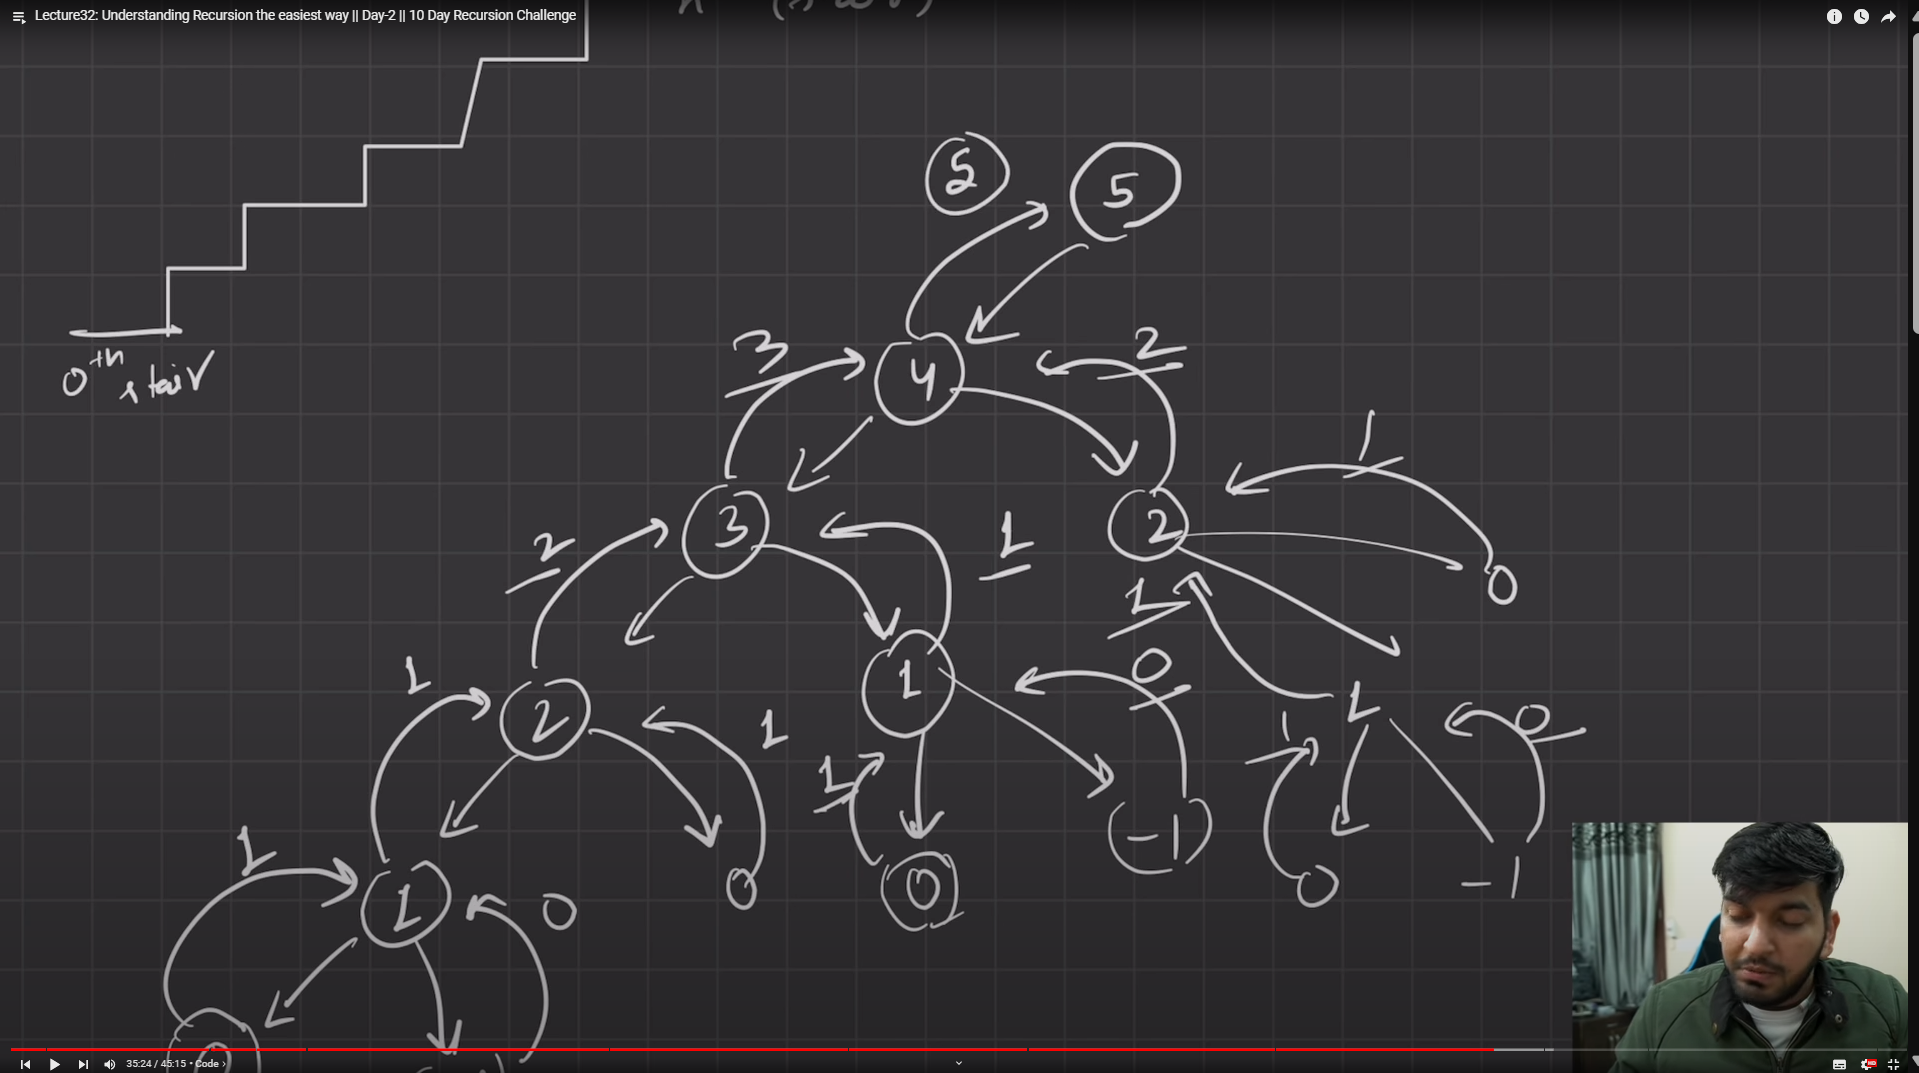 Lecture32: Understanding Recursion the easiest way || Day-2 || 10 Day Recursion Challenge
5 5
3 4 2
0th stair
1
2 3 1 2
0
1
0
1 2 1 1 1 1 0
1
1 1 0 0 0 -1 0 -1
0
35:24 / 45:15 • Code ›